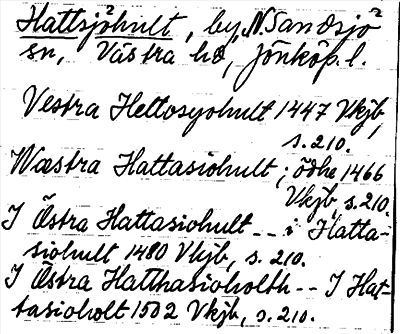 Hattsjöhult, by, N. Sandsjö
sn, Västra hd, Jönköp. l.
Vestra Hettosyohult 1447 Vkjb,
s. 210.
Wæstra Hattasiohult; ödhe 1466
Vkjb, s. 210.
J Östra Hattasiohult -- i Hatta-
siohult 1480 Vkjb, s. 210.
J Östra Hatthasioholth -- J Hat-
tasioholt 1502 Vkjb, s. 210.